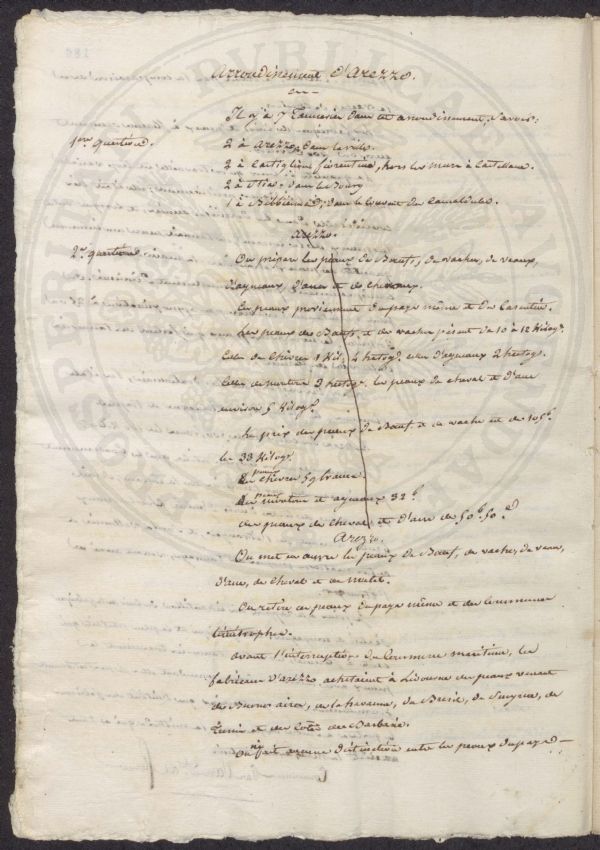 Arrondissement d'Arezzo.
Il y a 7 Tanneries dans cet arrondissement, savoir:
1ere question. 2 à Arezzo, dans la ville.
2 à Castiglion fiorentino, hors les murs à Castellana.
2 à Stia, dans le bourg
1 à Bibbiena, dans le Couvent des Camaldules.
Arezzo.
2e question. On prépare les peaux de Bœufs, de vaches, de veaux,
d'agneaux, d'anes et de chevaux.
Ces peaux proviennent du pays même et du Casentin.
Les peaux de Bœufs et de vaches pèsent de 10 à 12 Kilog.
Celles de Chèvres 1 Kil. 4 hectog. celles d'agneaux 2 hectog.
Celles de moutons 9 hectog. les peaux de cheval et d'ane
environ 5 Kilog.
Le prix des peaux de Bœuf et de vache est de 105f.
les 33 Kilog.
de chèvres 59 francs.
de moutons et agneaux 32f.
des peaux de cheval et d'ane de 50f. 50c.
Arezzo.
On met en œuvre les peaux de Bœuf, de vaches, de veau,
d'ane, de cheval et de mulet.
On retire ces peaux du pays même et des Communes
limitrophes.
avant l'interruption du Commerce maritime, les
fabricans d'Arezzo achetaient à Livourne des peaux venant
de Buenos aires, de la havanne, du Bresil, de Smyrne, de
Tunis et des Cotes de Barbarie.
On n'y fait aucune distinction entre les peaux du pays